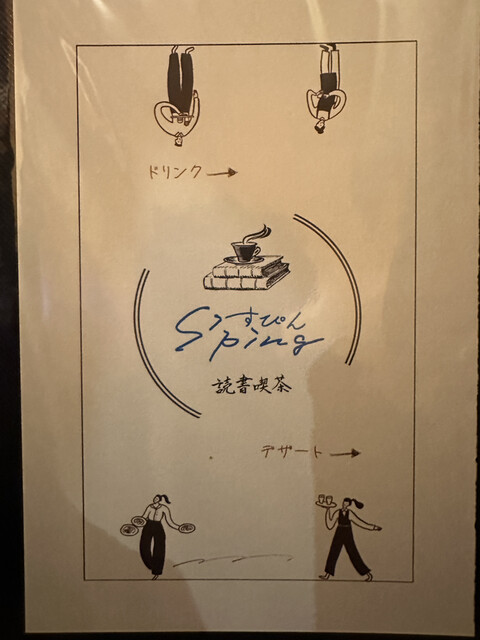 ドリンク→
すぴん
Sping
読書喫茶
デザート→